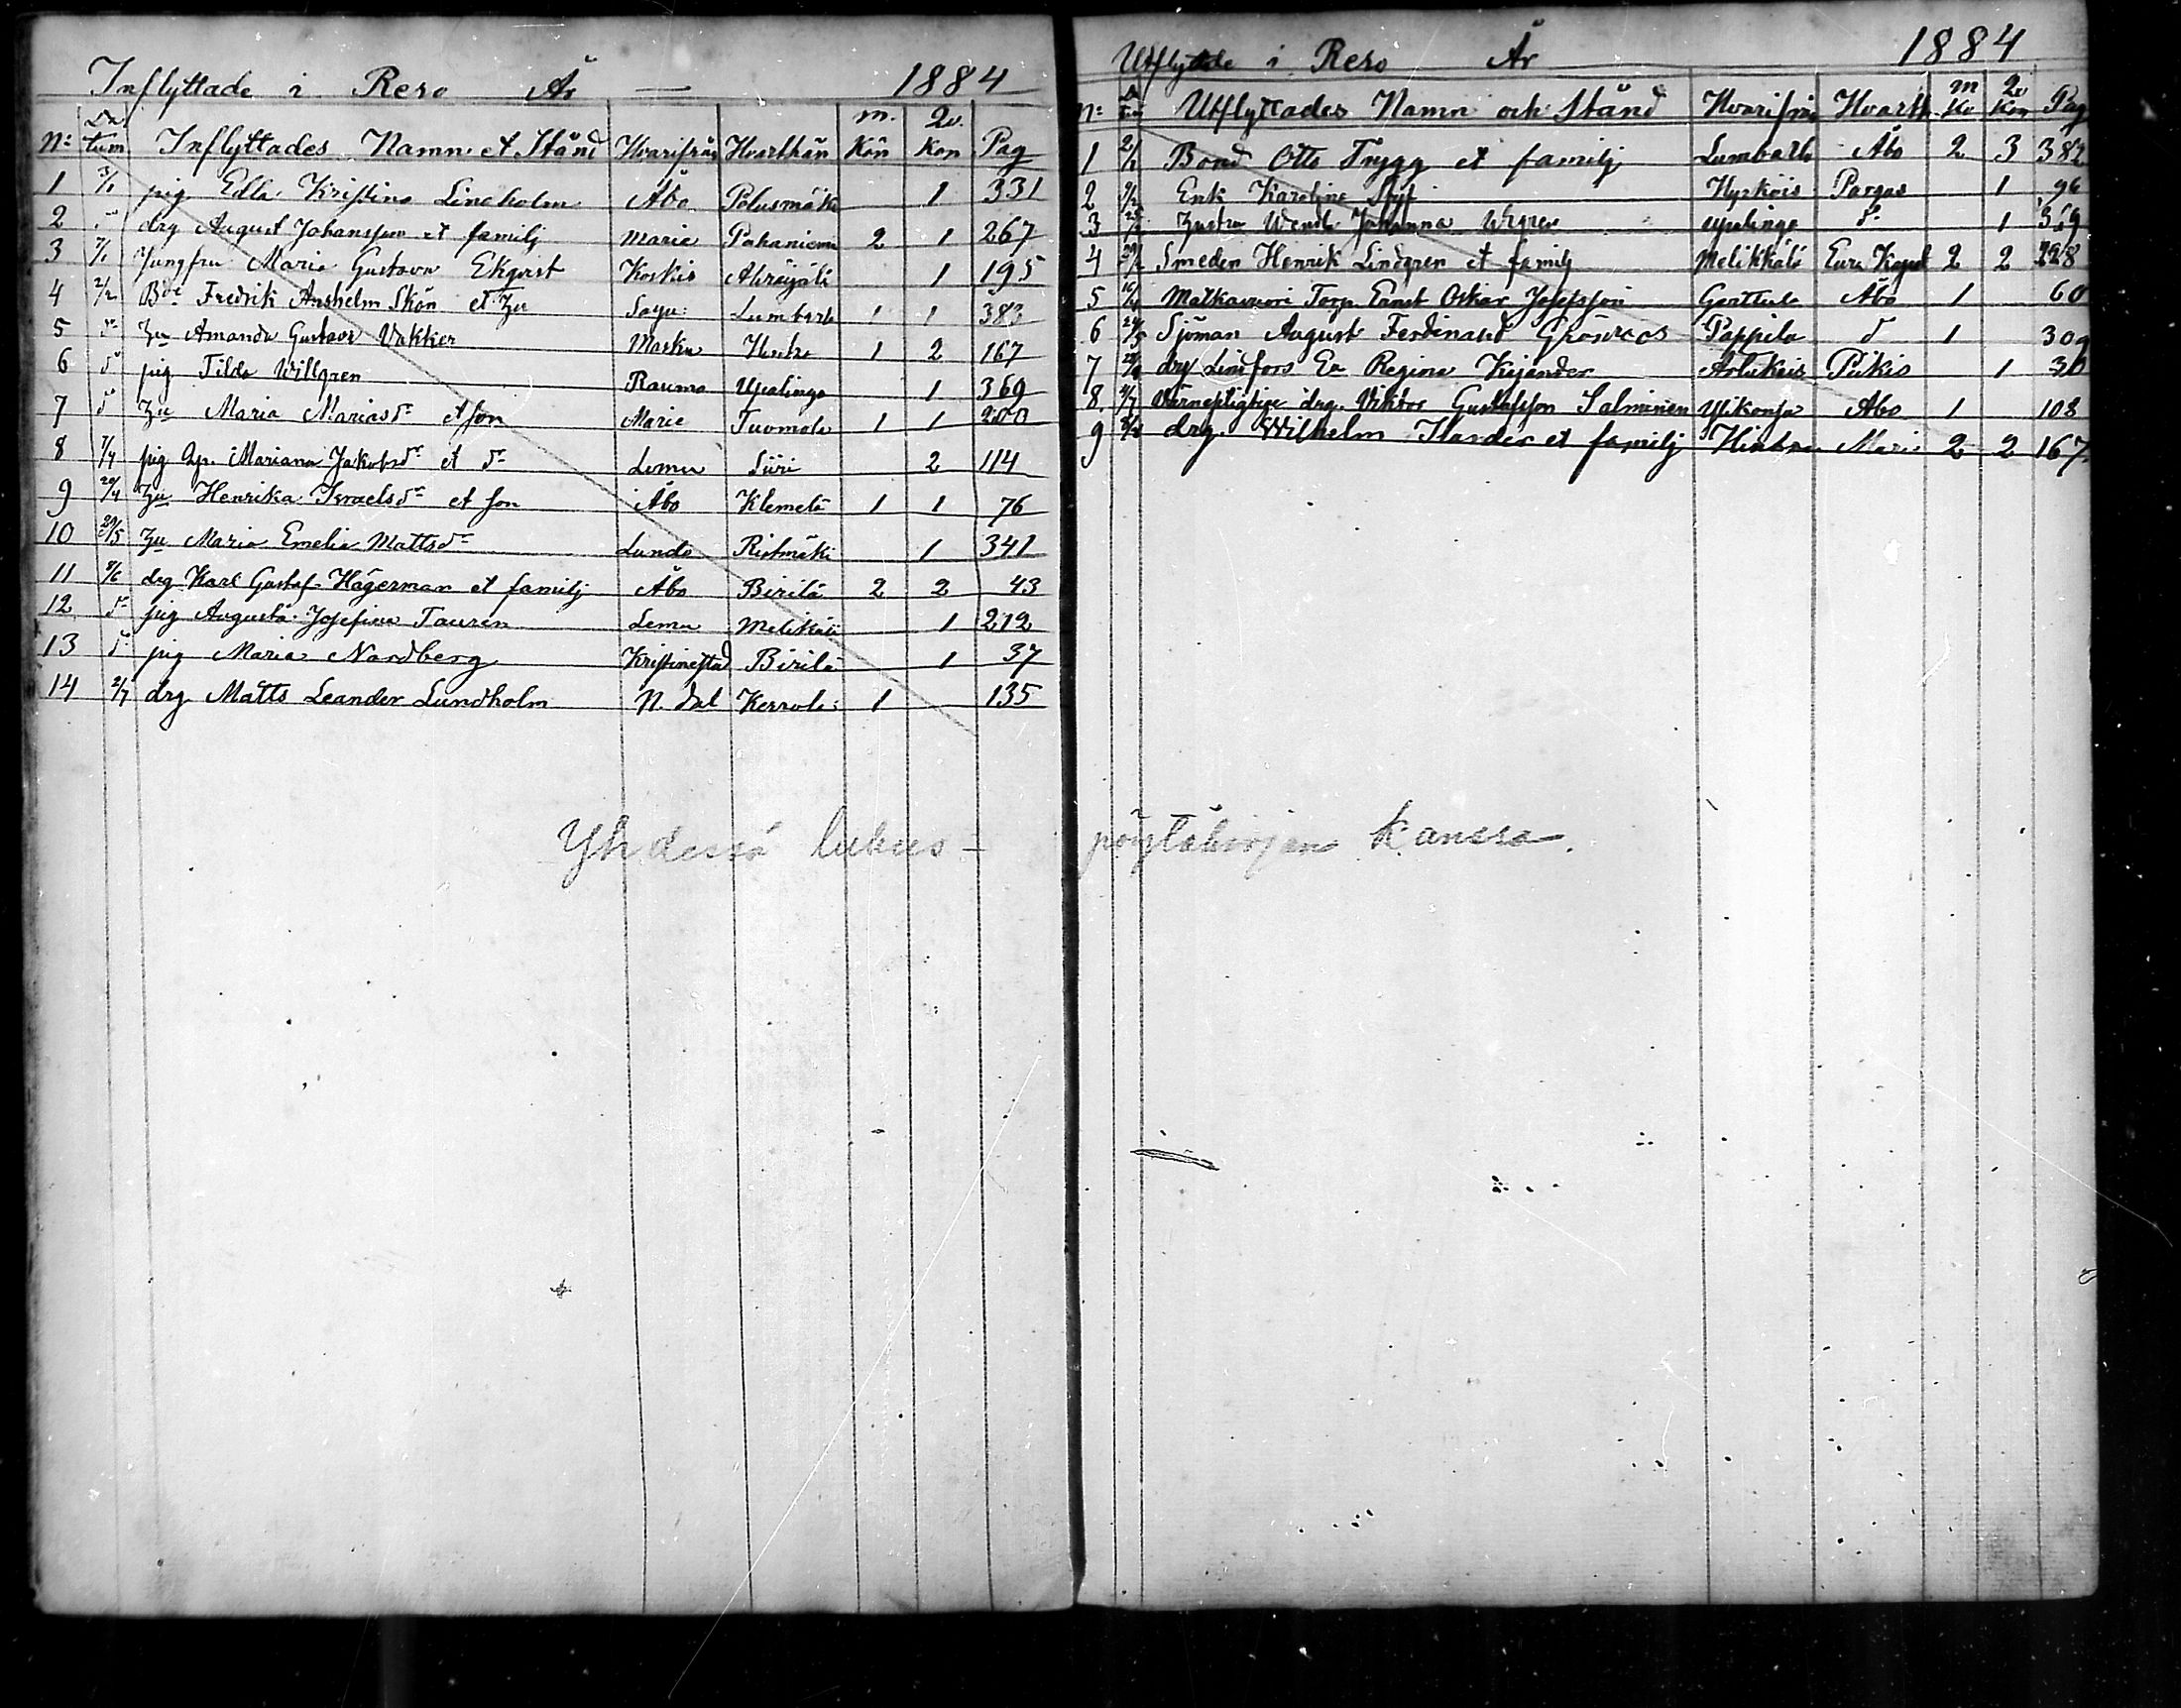 Inflyttade i Reso År — 1884
No Datum Inflyttades Namn et Stånd Hvarifrån Hvarthän m. Kön Qv. Kön Pag
1 3/1 pig Edla Kristina Lindholm Åbo Polusmäki 1 331
2 drg August Johansson et familj Marie Pahaniemi 2 1 267
3 7/1 Jungfru Maria Gustava Ekqvist Koskis 1 195
4 2/2 Bde Fredrik Anshelm Skön et hu Sagu Lumbarla 1 1 383
5 do hu Amanda Gustava Vakker Masku 1 2 167
6 do pig Tilda Willgren Raumo Upalingo 1 369
7 do hu Maria Mariasdr et son Marie Tuomola 1 1 200
8 7/4 pig Mariana Jakobsdr et dr Lemu Siiri 2 114
9 20/4 hu Henrika Israelsdr et son Åbo Klemelä 1 1 76
10 29/5 hu Maria Emelia Mattsdr Lundo Ristmäki 1 341
11 8/6 drg Karl Gustaf Hägerman et familj Åbo Pirilä 2 2 43
12 do pig Augusta Josefina Tauren Lemu Melikälä 1 272
13 do pig Maria Nordberg Kristinestad Pirilä 1 37
14 2/7 drg Matts Leander Lundholm N. dal Kerrola 1 135
Yhdessä lukus-
Utflyttde i Reso År 1884
No Datum Utflyttades Namn och Stånd Hvarifrån Hvarth. m Kö Qv Kön Pag
1 2/1 Bond Otto Trygg et familj Lumbarla Åbo 2 3 382
2 Enk Karolina Hyrköis Pargas 1 96
3 Johanna do 1 369
4 Smeden Henrik Lindgren et familj Melikkälä Eura Kapel 2 2 228
5 16/4 Matkavuori Torp Ernst Oskar Josefsson Gerttula Åbo 1 60
6 24/5 Sjöman August Ferdinand Grönroos Pappila do 1 309
7 drg Lindfors Regina Kejander Artukais Pikis 1 30
8 2/7 Värnepligtige drg. Viktor Gustafsson Salminen Ylikonsa Åbo 1 108
9 drg. Wilhelm Harder et familj Marie 2 2 167
pöytäkirjan kanssa.